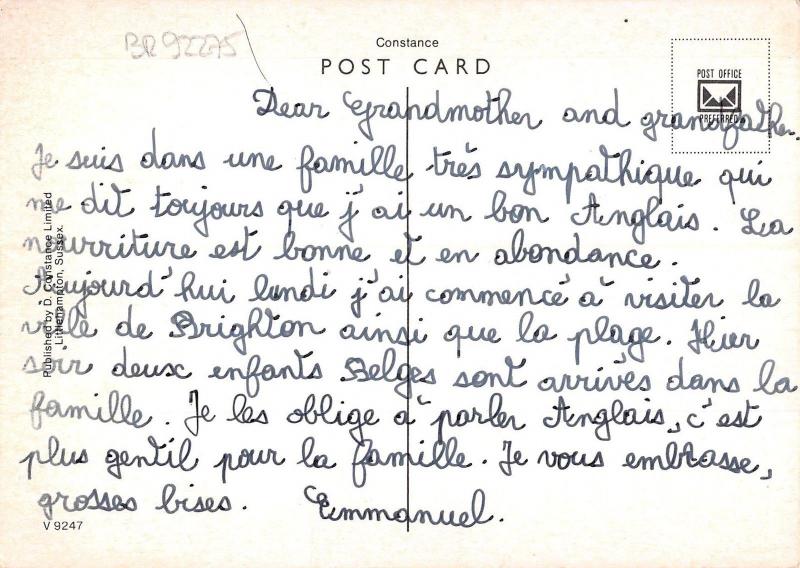 BR 92275
Constance
POST CARD
POST OFFICE
PREFERRED
Dear Grandmother and grandfather.
Je suis dans une famille très sympathique qui
me dit toujours que j'ai un bon Anglais. La
nourriture est bonne et en abondance.
Aujourd'hui lundi j'ai commencé à visiter la
ville de Brighton ainsi que la plage. Hier
soir deux enfants Belges sont arrivés dans la
famille. Je les oblige à parler Anglais, c'est
plus gentil pour la famille. Je vous embrasse,
grosses bises. Emmanuel.
V 9247
Published by D. Constance Limited
Littlehampton, Sussex.